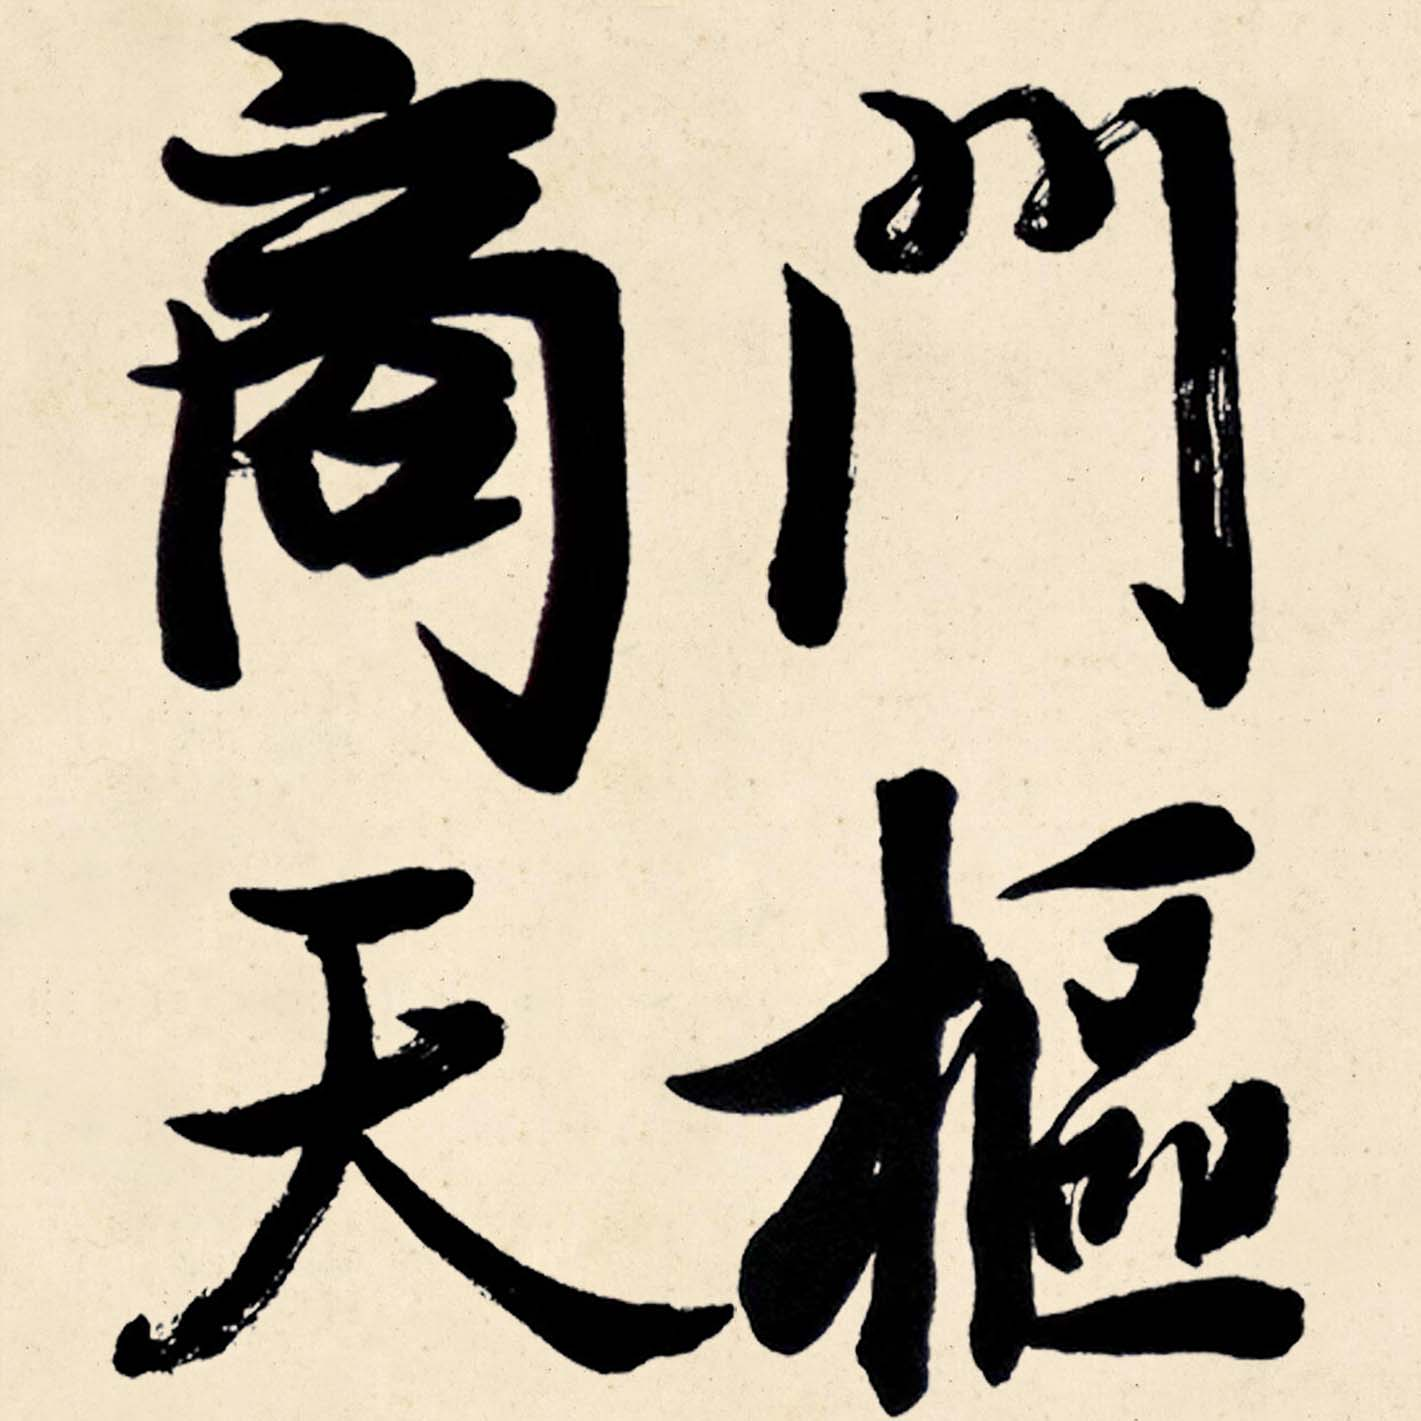 商門
天樞